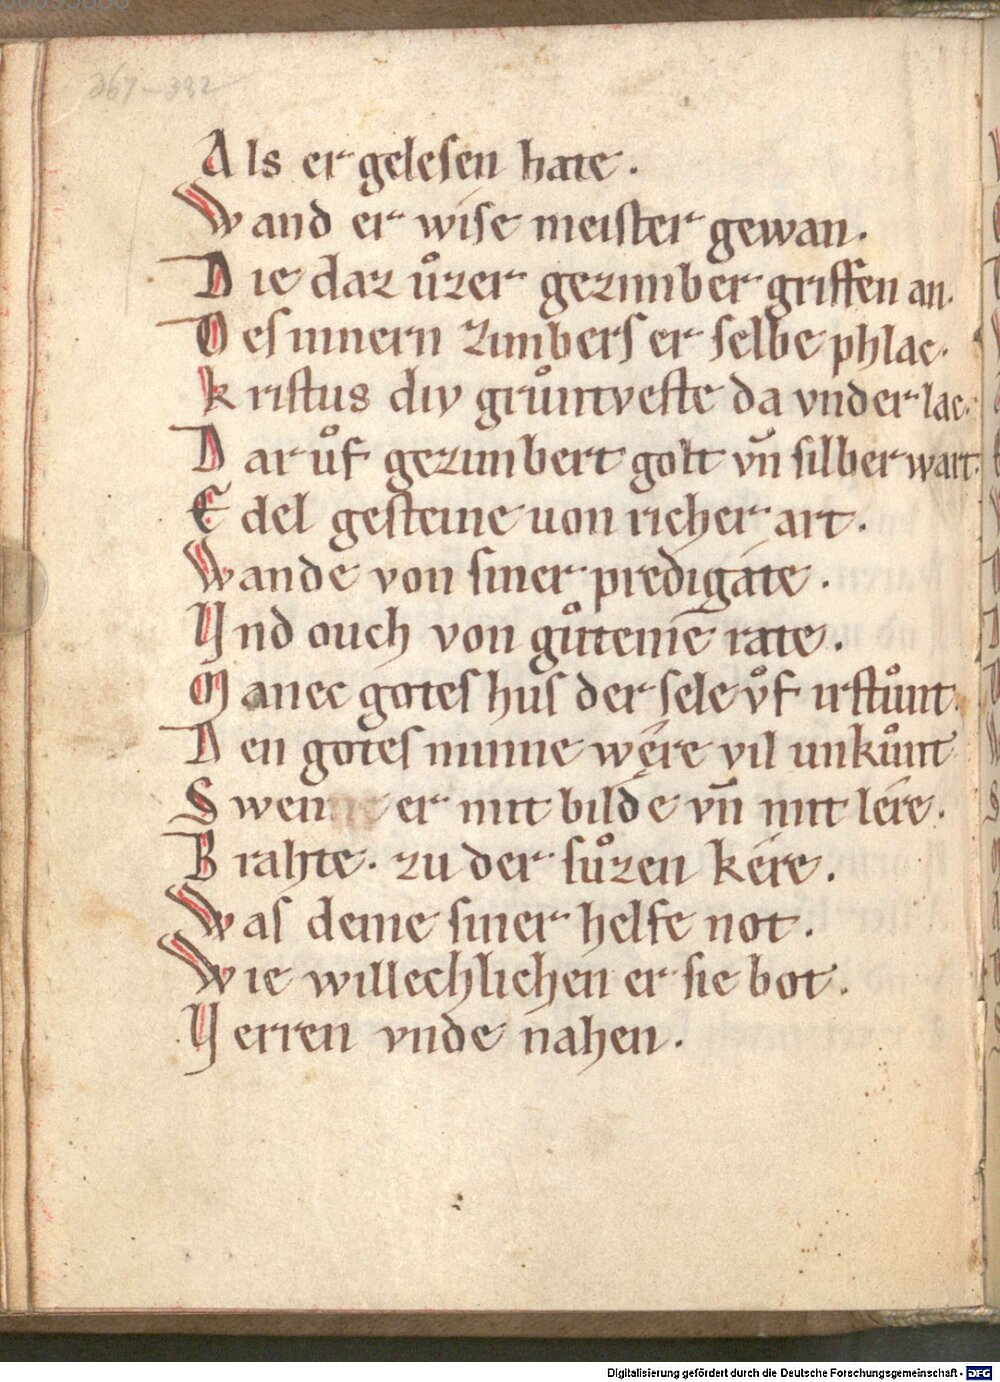 367-392
Als er gelesen hate.
Wand er wise meister gewan.
Die daz uͦzer gezimber griffen an.
Des innern zimbers er selbe phlac.
kristus div gruͦntveste da vnder lac.
Dar uͦf gezimbert golt vn̄ silber wart.
Edel gesteine uon richer art.
Wande von siner predigate.
Vnd ouch von guͦtenie rate.
Manec gotes hus der sele vͦf irstuͦnt.
Den gotes minne wêre vil unkuͦnt
Swenne er mit bilde vn̄ mit lere.
Brahte. zu der suͦzen kere.
Was deme siner helfe not.
Wie willechlichen er sie bot.
Verren vnde nahen.
Digitalisierung gefördert durch die Deutsche Forschungsgemeinschaft - DFG